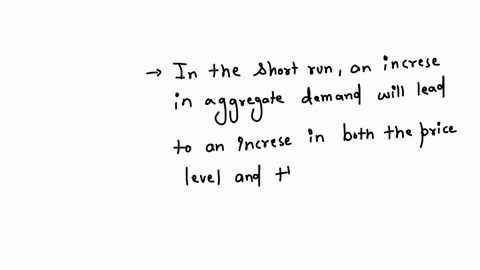 → In the short run, an increse
in aggregate demand will lead
to an increse in both the price
level and t